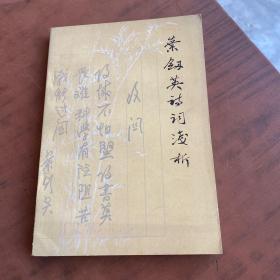 葉釼英詩词淺析
攻关
攻城不怕坚攻书莫
畏难科学有险阻苦
战能过关
葉剑英